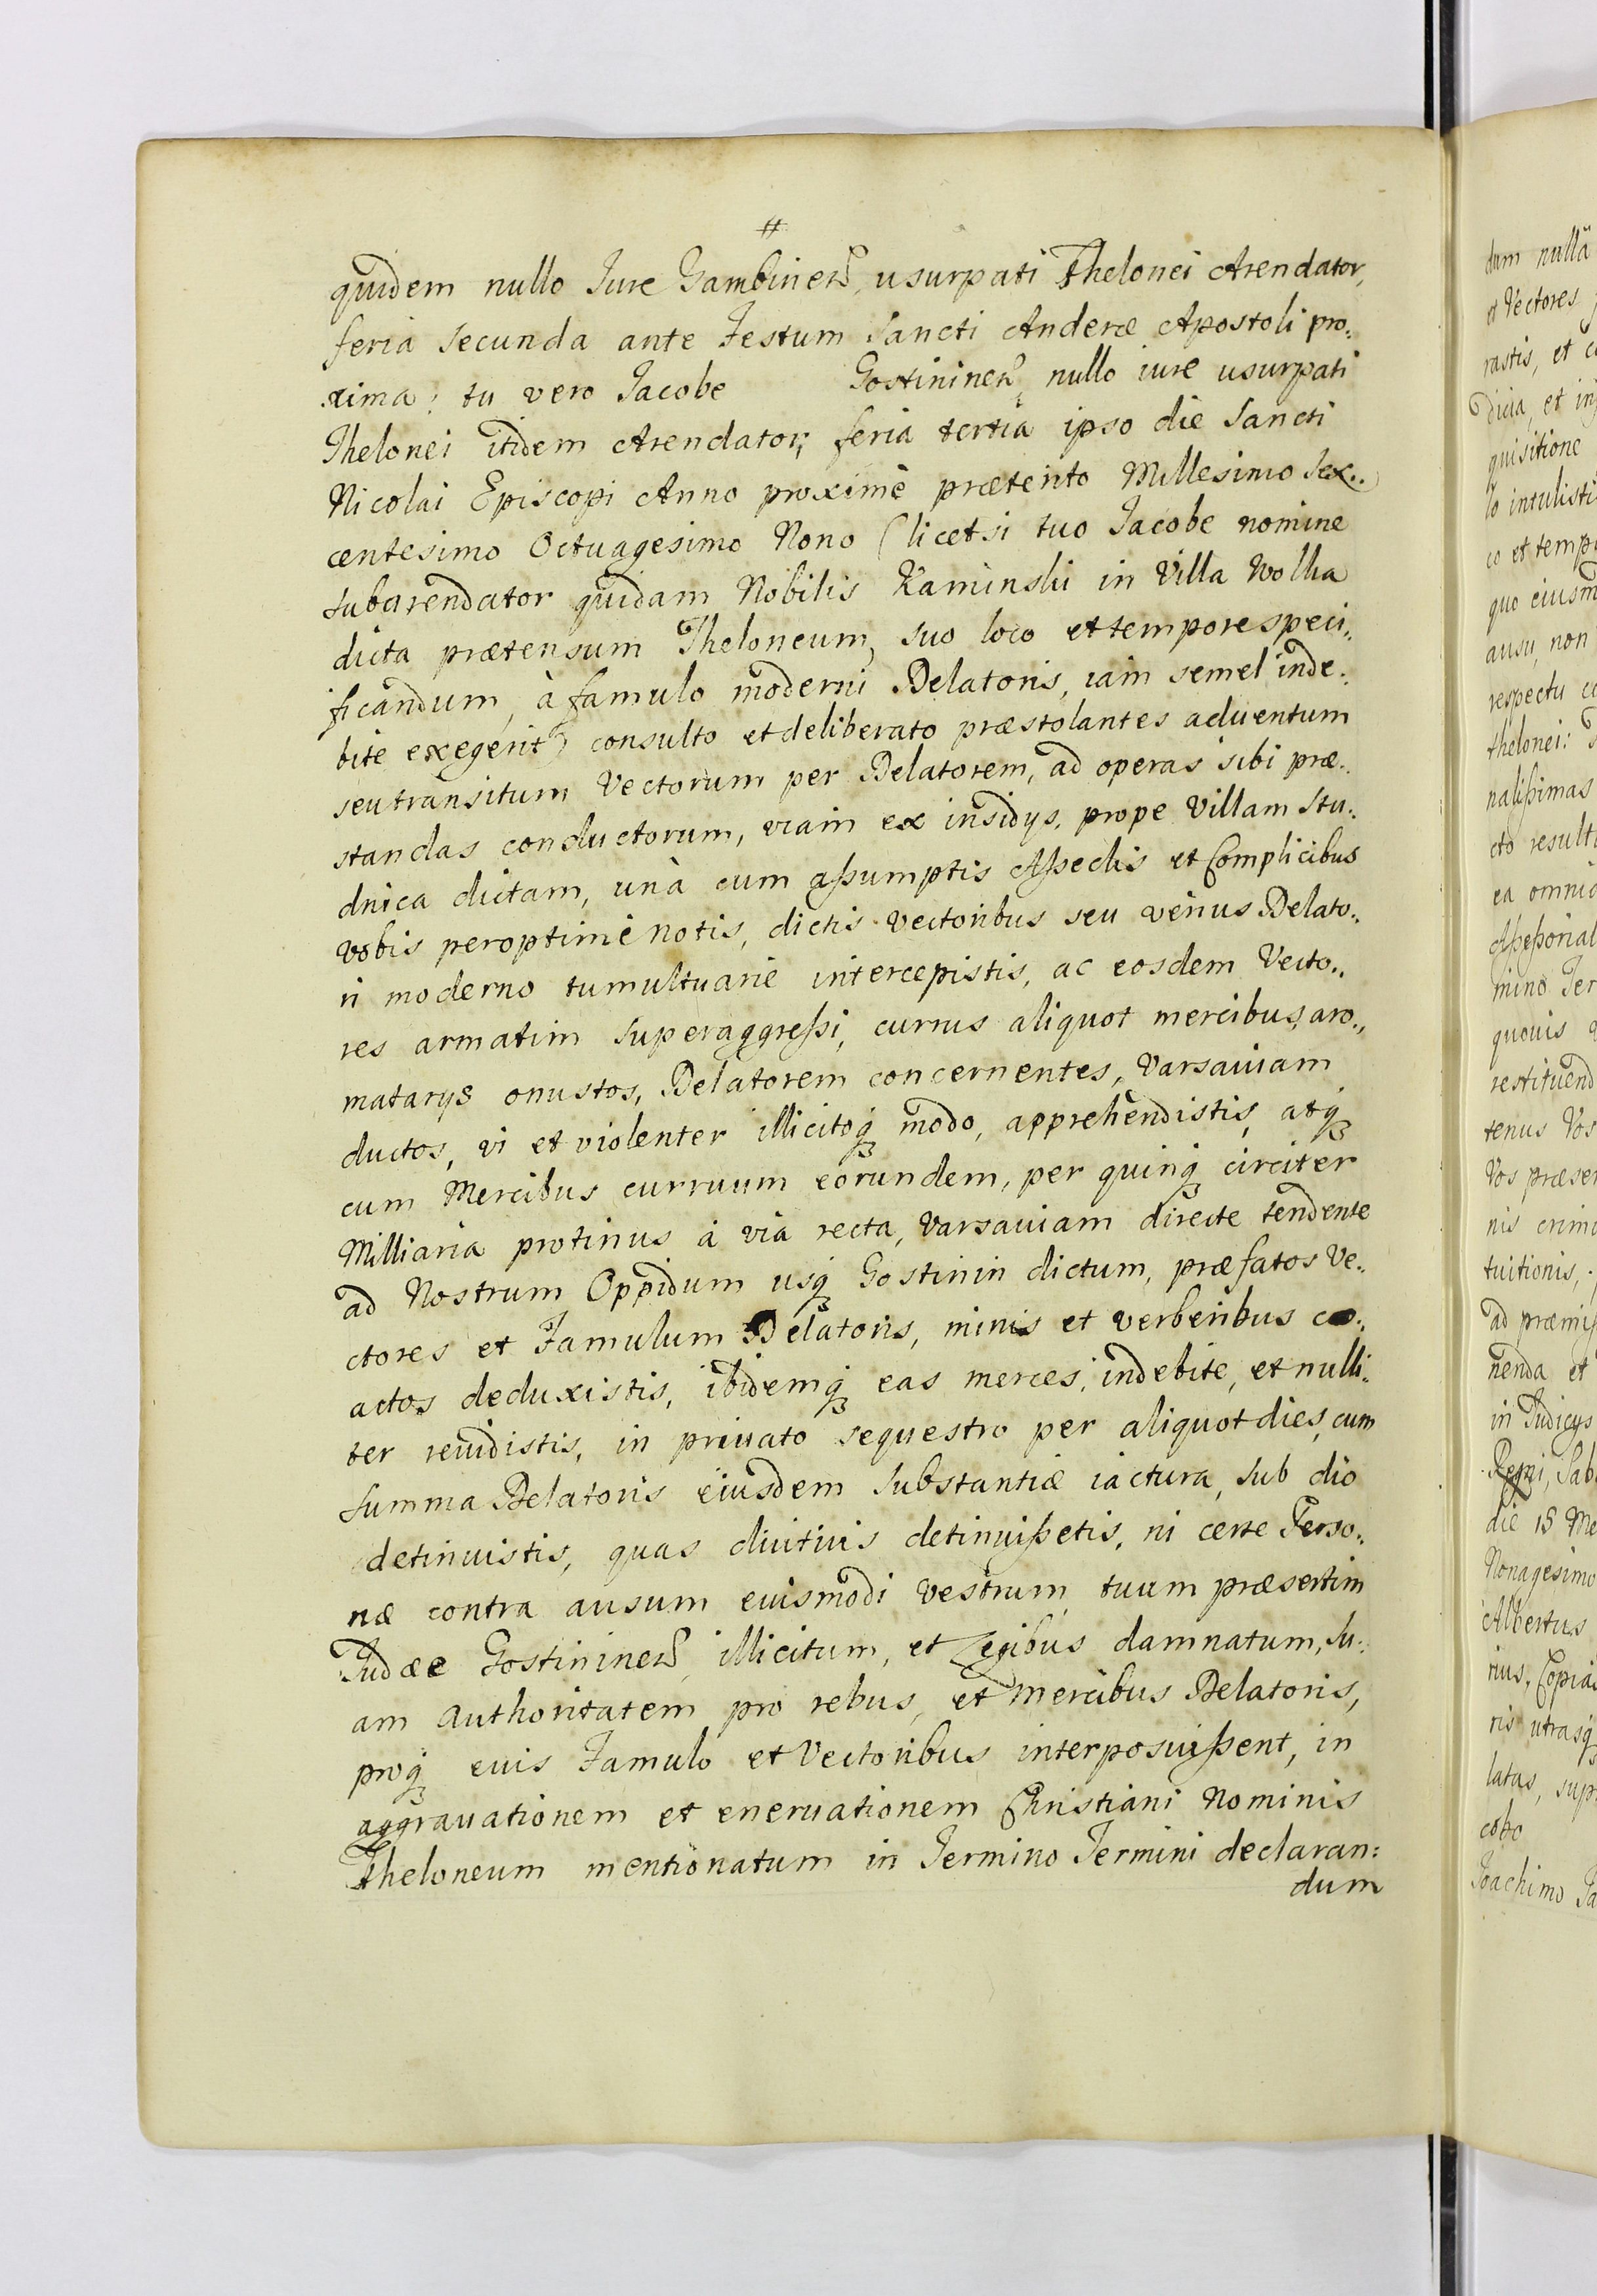 #
quidem nullo Jure Gambinen, usurpati Thelonei Arendator,
feria secunda ante Festum Sancti Anderæ Apostoli pro:
xima: tu vero Jacobe Gostininen, nullo iure usurpati
Thelonei itidem Arendator, feria tertia ipso die Sancti
Nicolai Episcopi Anno proximè præterito Millesimo Sex..
centesimo Octuagesimo Nono (licet si tuo Jacobe nomine
subarendator quidam Nobilis Kaminski in Villa Wolka
dicta prætensum Theloneum, suo loco et tempore speci:
ficandum, à famulo moderni Delatoris, iam semel inde:
bite exegerit) consulto et deliberato præstolantes aduentum
seu transitum Vectorum per Delatorem, ad operas sibi præ:
standas conductorum, viam ex insidys, prope Villam Stu:
dnica dictam, unà cum assumptis Asseclis et Complicibus
vobis peroptimè notis, dictis vectoribus seu verius Delato:
ri moderno tumultuarie intercepistis, ac eosdem Vecto:
res armatim superaggressi, currus aliquot mercibus, aro:
matarys onustos, Delatorem concernentes, Varsauiam
ductos, vi et violenter illicitoq; modo, apprehendistis, atq;
cum Mercibus curruum eorundem, per quinq; circiter
Milliaria protinus à via recta, Varsauiam directe tendente
ad Nostrum Oppidum usq; Gostinin dictum, præfatos Ve:
ctores et Famulum Delatoris, minis et verberibus co:
actos deduxistis, ibidemq; eas merces, indebite, et nulli:
ter reuidistis, in priuato sequestro per aliquot dies, cum
summa Delatoris eiusdem substantiæ iactura, sub dio
detinuistis, quas diutius detinuissetis, ni certe Perso:
næ contra ausum euismodi vestrum, tuum præsertim
Judæe Gostininen, illicitum, et Legibus damnatum, su:
am authoritatem pro rebus, et mercibus Delatoris,
proq; euis Famulo et Vectoribus interposuissent, in
aggrauationem et eneruationem Christiani Nominis
Theloneum mentionatum in Termino Termini declaran:
dum
dum nullâ
et Vectores
rastis, et
dicia, et
quisitione
lo intulisti
co et
quo
ausu, non
respectu
thelonei:
nalissimas
cto
ea omnia
mino
quouis
tenus Vos
Vos
nis
tuitionis,
ad
nenda et
in Judicys
die 18
Nonagesimo
Albertus
rius, Copias
ris utrasq;
latas,
Joachimo